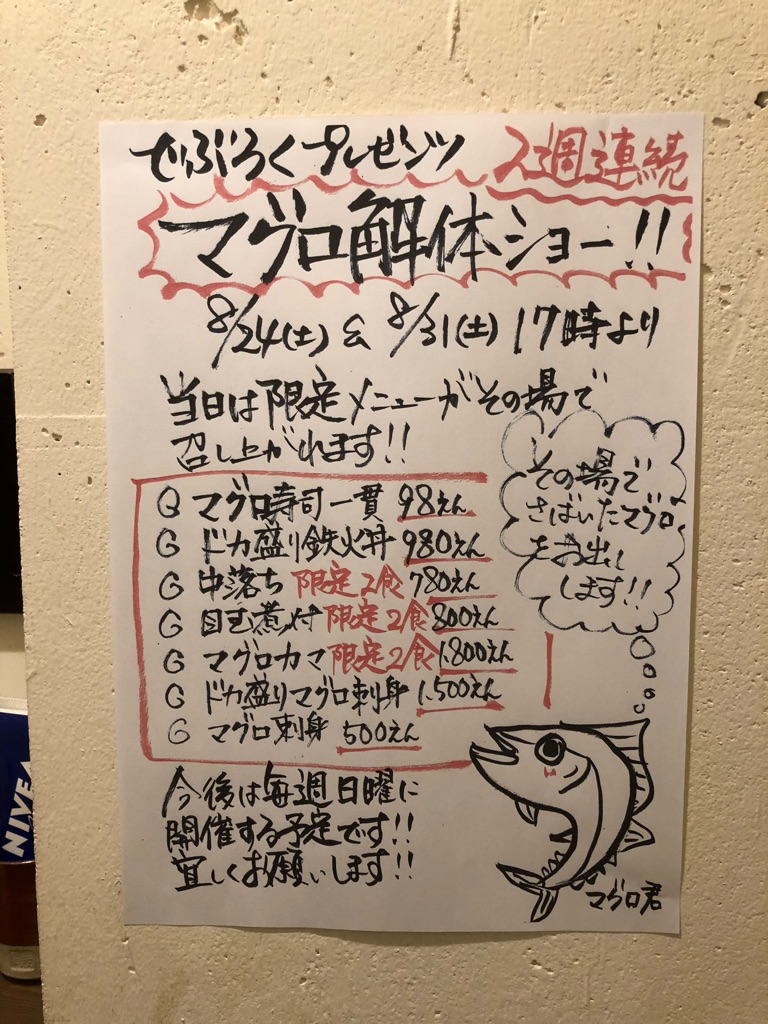 でぶろくプレゼンツ 2週連続
マグロ解体ショー!!
8/24(土) & 8/31(土) 17時より
当日は限定メニューがその場で
召し上がれます!!
マグロ寿司一貫 98えん
ドカ盛り鉄火丼 980えん
中落ち 限定2食 780えん
目玉煮付 限定2食 800えん
マグロカマ 限定2食 1.800えん
ドカ盛りマグロ刺身 1.500えん
マグロ刺身 500えん
その場で
さばいたマグロ
をお出し
します!!
今後は毎週日曜に
開催する予定です!!
宜しくお願いします!!
マグロ君
NIVEA